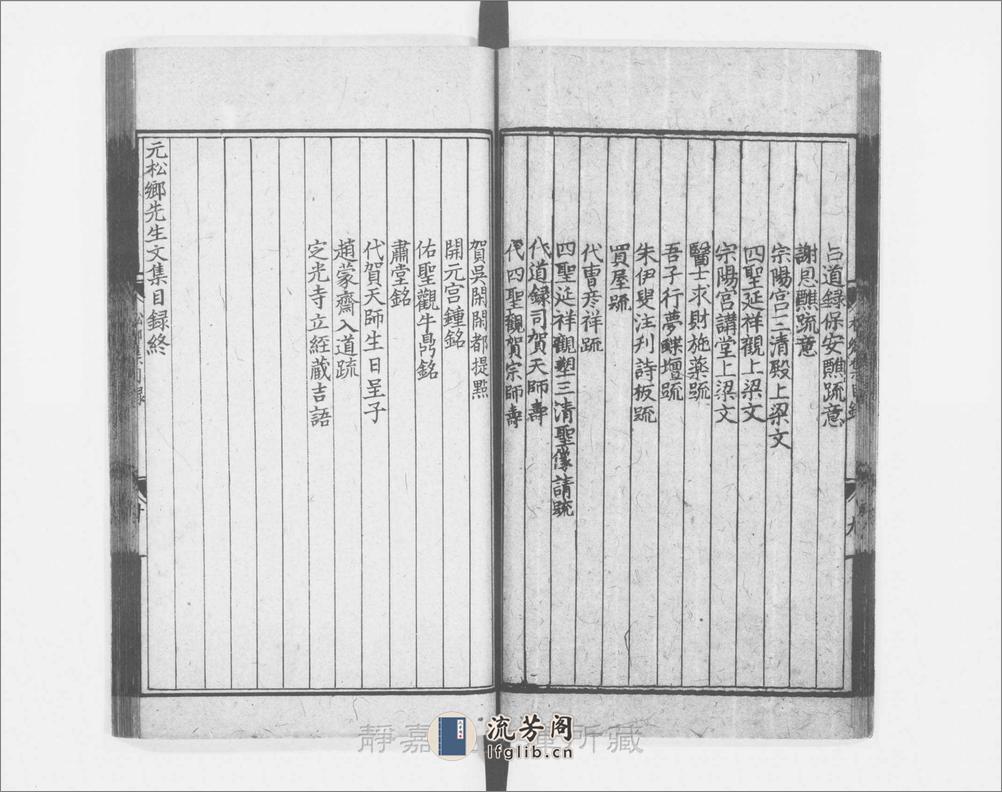 占道録保安醮䟽意
謝恩醮䟽意
宗陽宫三清殿上梁文
四聖延祥觀上梁文
宗陽宫講堂上梁文
醫士求財施藥䟽
吾子行夢蝶壇䟽
朱伊叟注刋詩板䟽
買屋䟽
代曺彦祥䟽
四聖延祥觀塑三清聖像請䟽
代道録司賀天師壽
代四聖觀賀宗師壽
賀吳閑閑都提㸃
開元宫鍾銘
佑聖觀牛鼎銘
肅堂銘
代賀天師生日呈子
趙蒙齋入道䟽
定光寺立経蔵吉語
元松鄉先生文集目録終
九
十
靜嘉
所藏
流芳阁
lfglib.cn